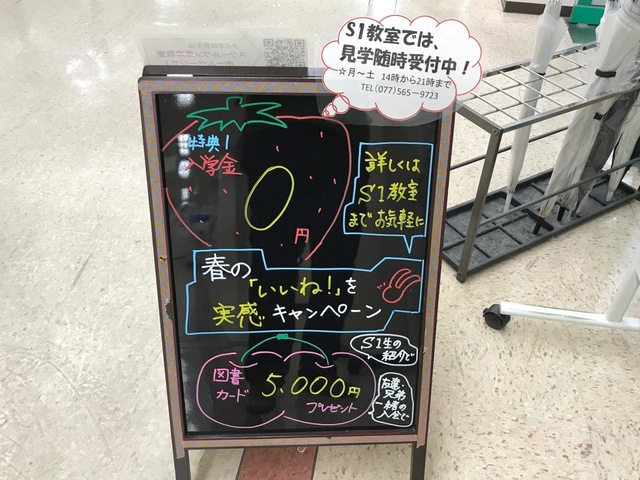 S1教室では、
見学随時受付中！
☆月～土 14時から21時まで
TEL(077)565－9723
特典1
入学金
0
円
詳しくは
S1教室
までお気軽に
春の
「いいね！」を
実感キャンペーン
S1生の
紹介で
図書
カード
5,000円
プレゼント
友達
兄弟
一緒の
入会で